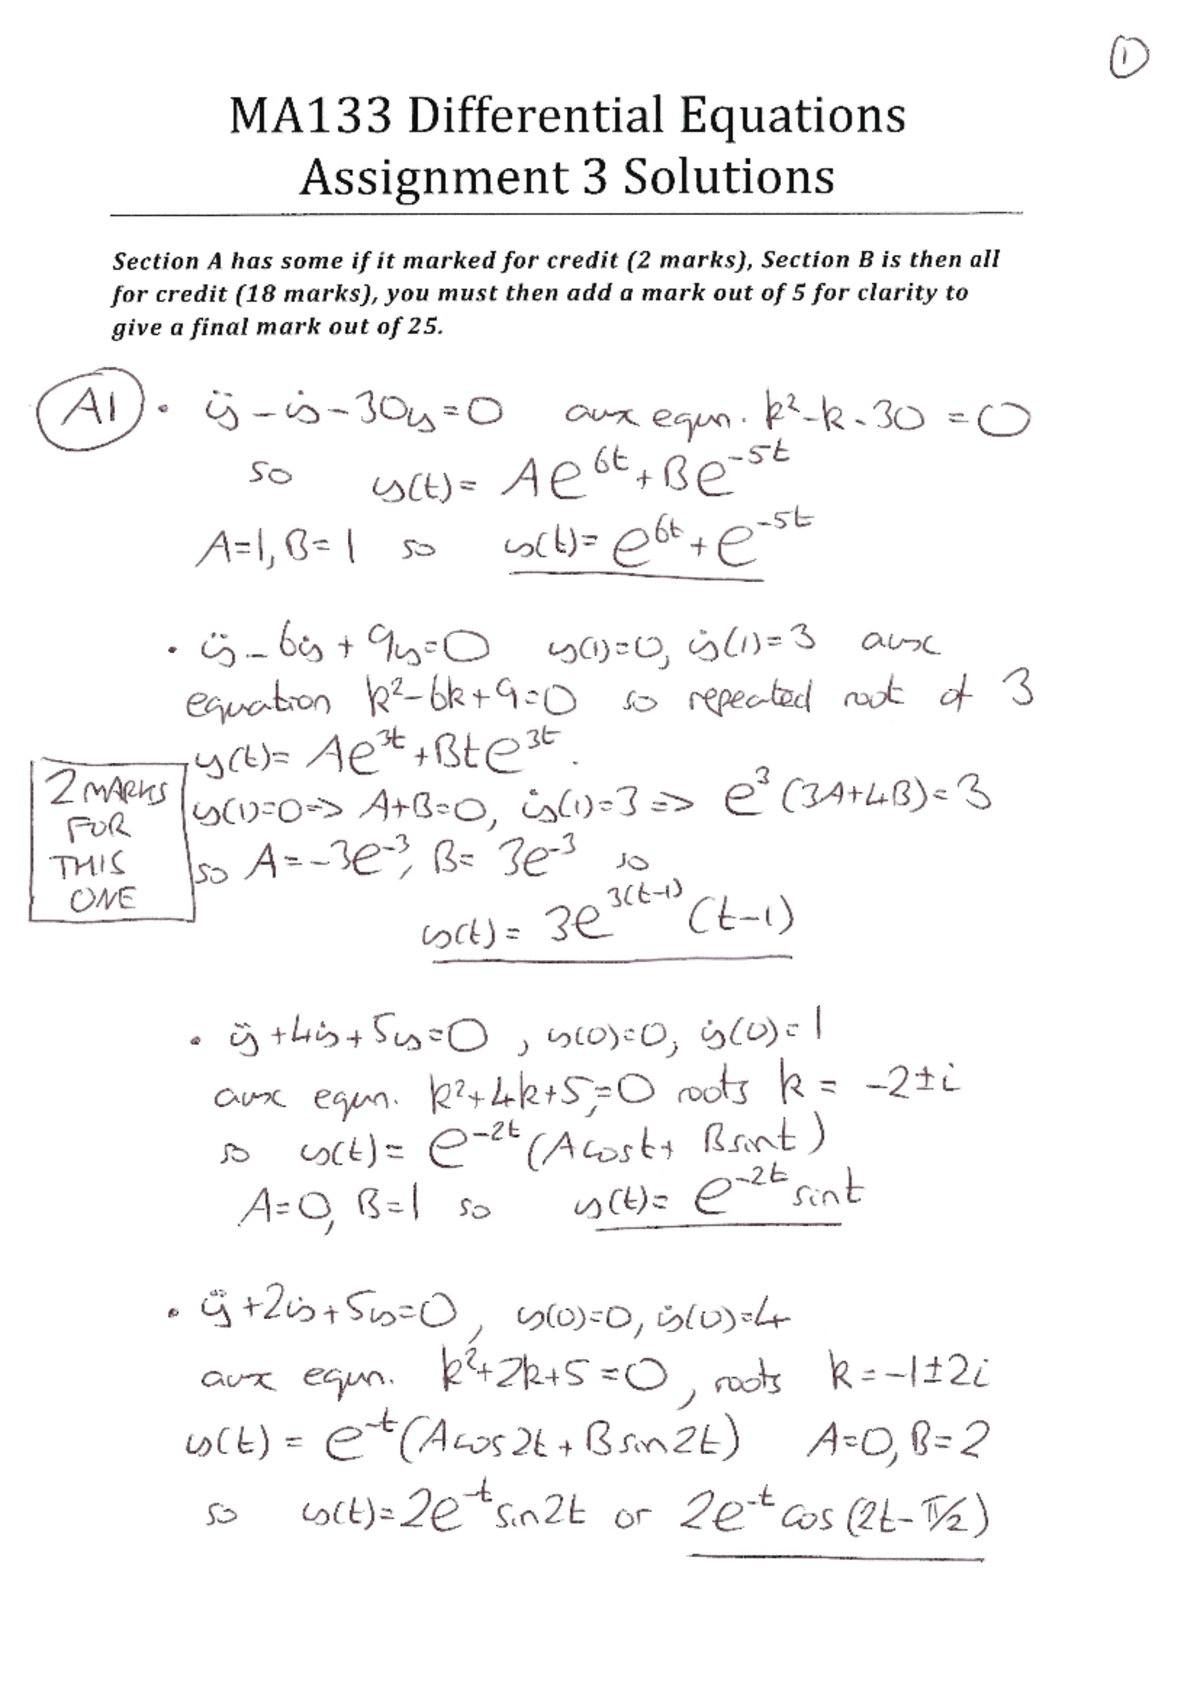 ①
MA133 Differential Equations
Assignment 3 Solutions
Section A has some if it marked for credit (2 marks), Section B is then all
for credit (18 marks), you must then add a mark out of 5 for clarity to
give a final mark out of 25.
A1 • ÿ - ẏ - 30y = 0 aux eqn. k² - k - 30 = 0
so y(t) = Ae^{6t} + Be^{-5t}
A=1, B=1 so y(t) = e^{6t} + e^{-5t}
• ÿ - 6ẏ + 9y = 0 y(1)=0, ẏ(1)=3 aux
equation k² - 6k + 9 = 0 so repeated root of 3
y(t) = Ae^{3t} + Bte^{3t}.
y(1)=0 => A+B=0, ẏ(1)=3 => e³(3A+4B)=3
so A = -3e^{-3}, B = 3e^{-3} so
2 MARKS
FOR
THIS
ONE
y(t) = 3e^{3(t-1)}(t-1)
• ÿ + 4ẏ + 5y = 0, y(0)=0, ẏ(0)=1
aux eqn. k² + 4k + 5 = 0 roots k = -2±i
so y(t) = e^{-2t}(A cos t + B sin t)
A=0, B=1 so y(t) = e^{-2t} sin t
• ÿ + 2ẏ + 5y = 0, y(0)=0, ẏ(0)=4
aux eqn. k² + 2k + 5 = 0, roots k = -1±2i
y(t) = e^{-t}(A cos 2t + B sin 2t) A=0, B=2
so y(t) = 2e^{-t} sin 2t or 2e^{-t} cos (2t - π/2)